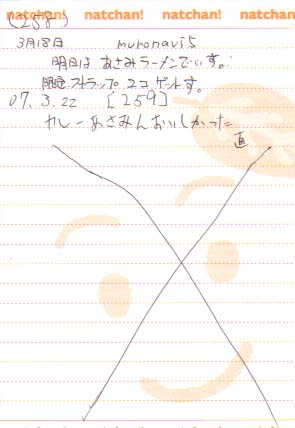 natchan! natchan! natchan! natchan!
(258)
3月18日 muronavi5
明日は あさみラーメンでいす。
限定ストラップ 2コ ゲットす。
07. 3. 22 [259]
カレーあさみんおいしかった
直